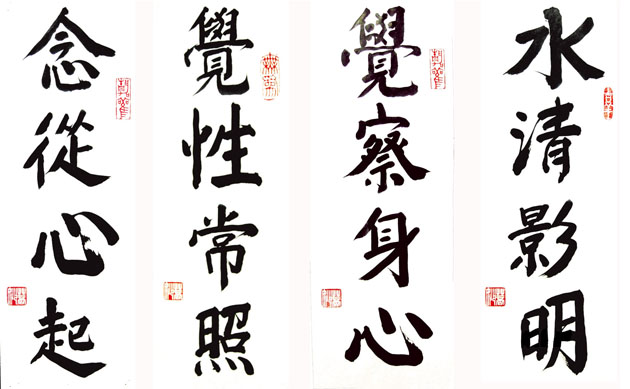 水清影明
覺察身心
覺性常照
念從心起